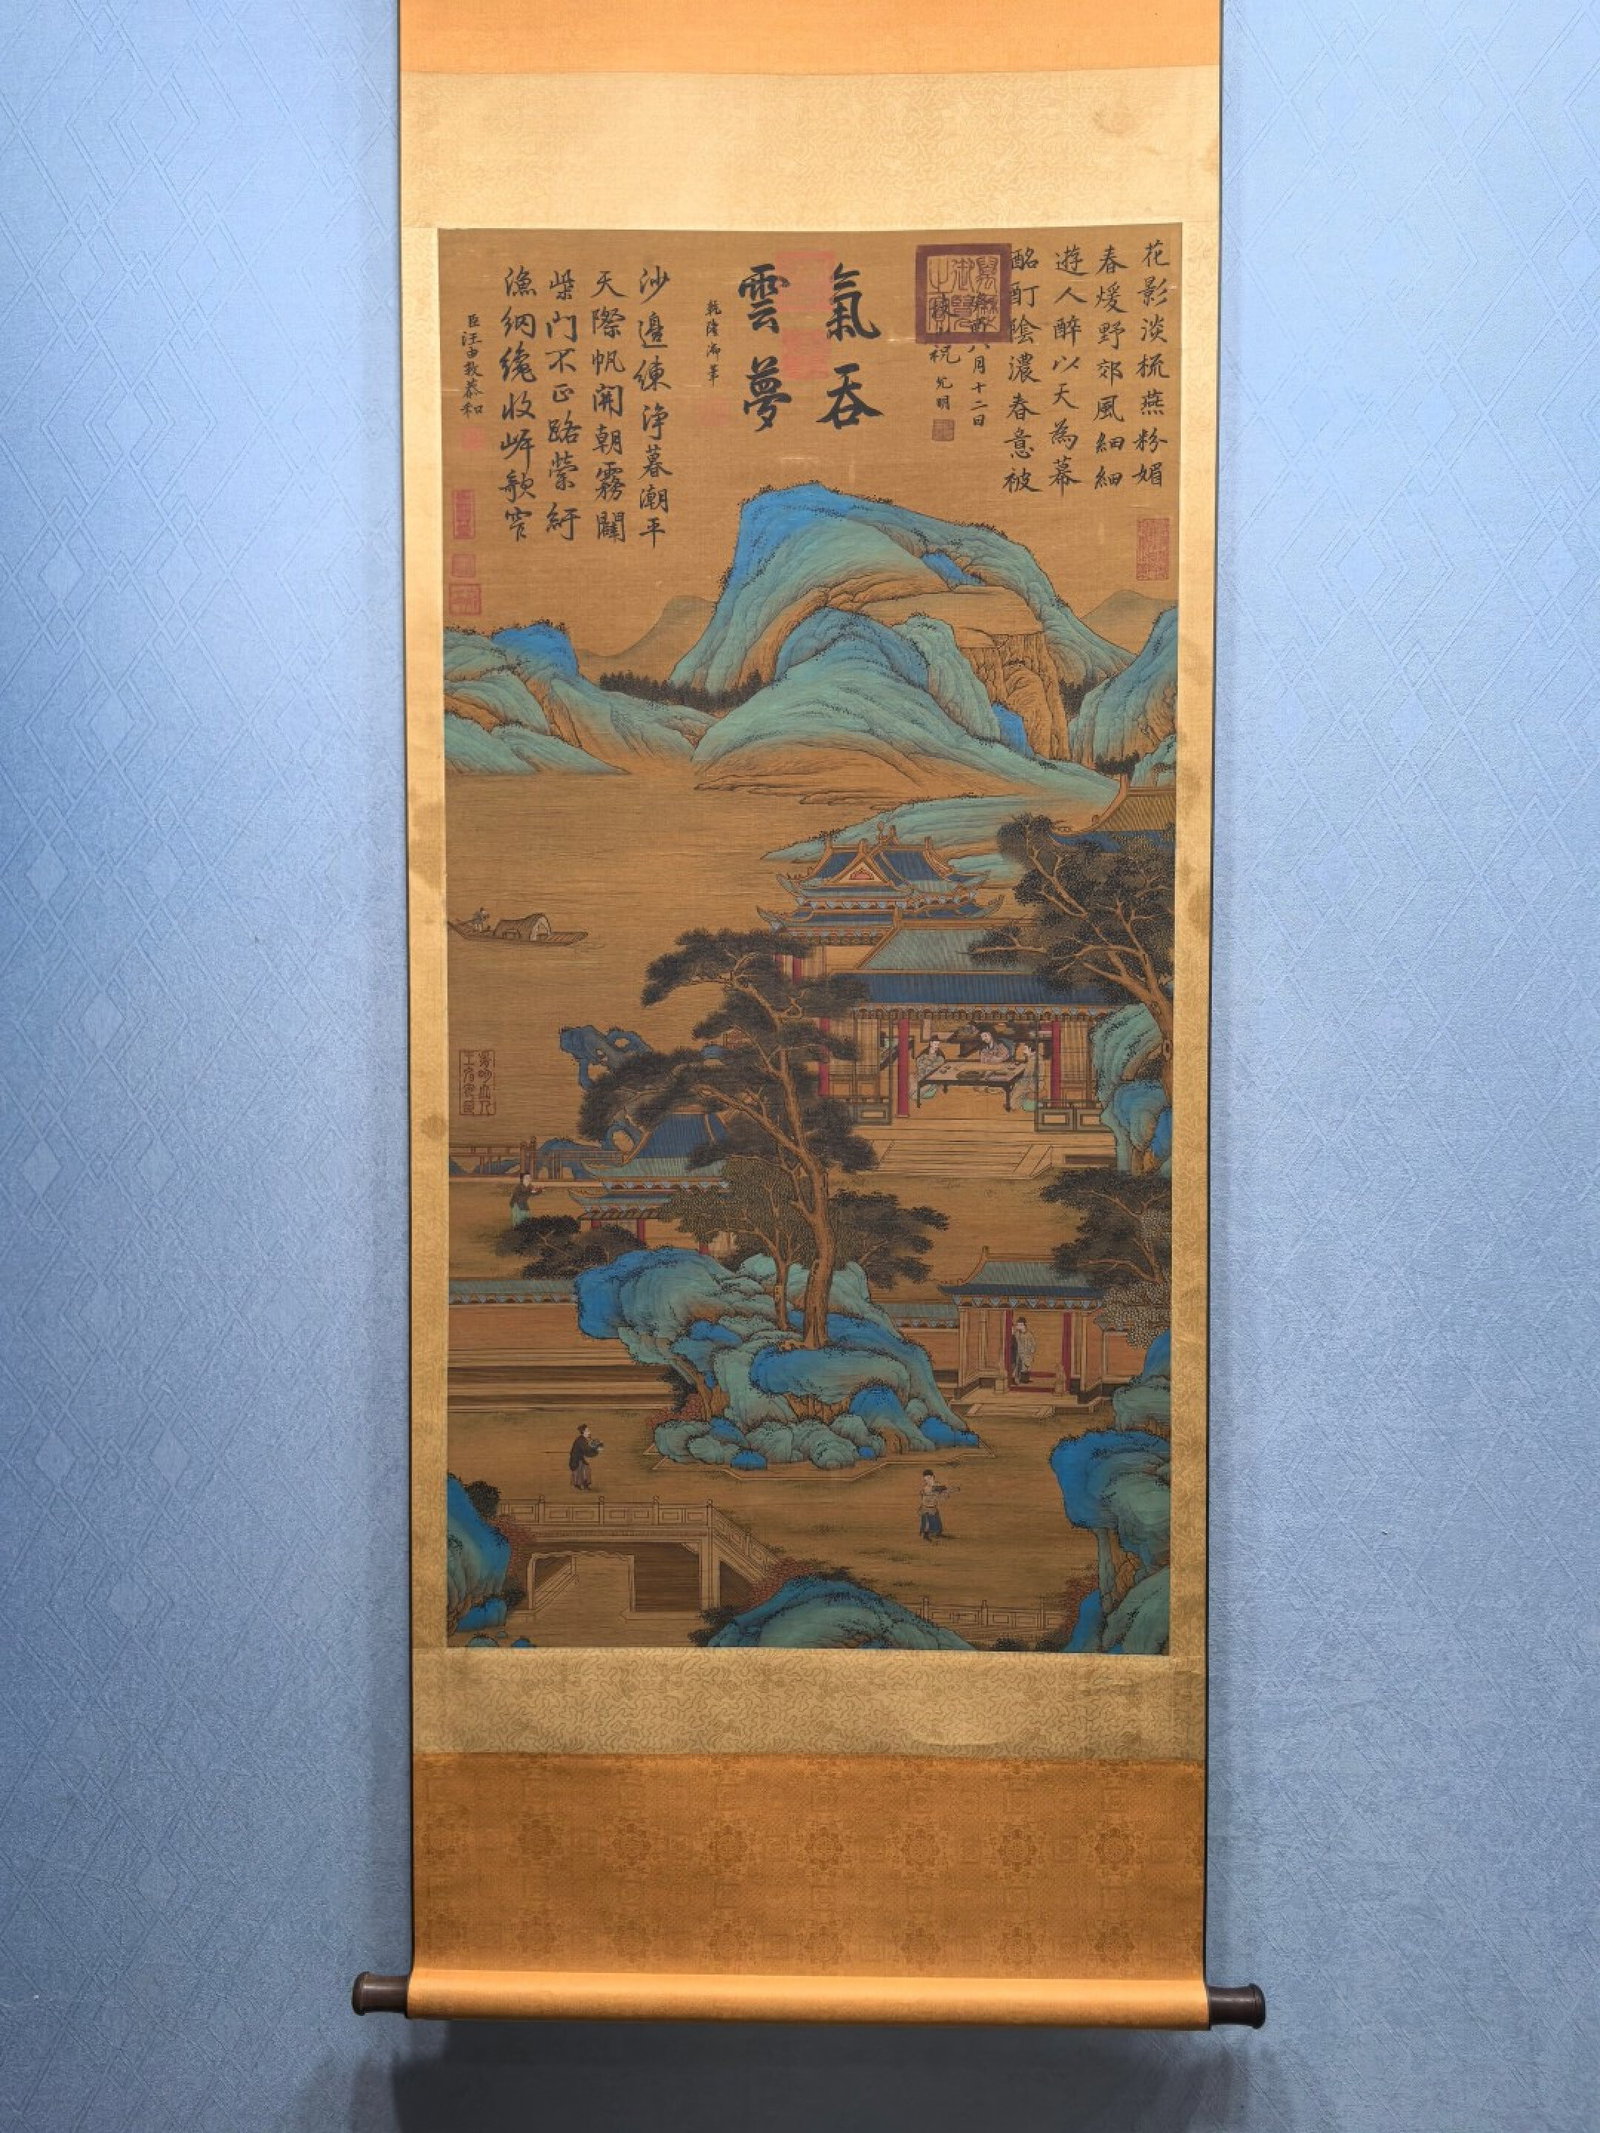 花影淡梳燕粉媚
春煖野郊風細細
遊人醉以天為幕
酩酊陰濃春意被
八月十二日
祝允明
氣吞
雲夢
乾隆御筆
沙邊練淨暮潮平
天際帆開朝霧闢
柴門不正路縈紆
漁網纔收岸歌窄
臣汪由敦恭和